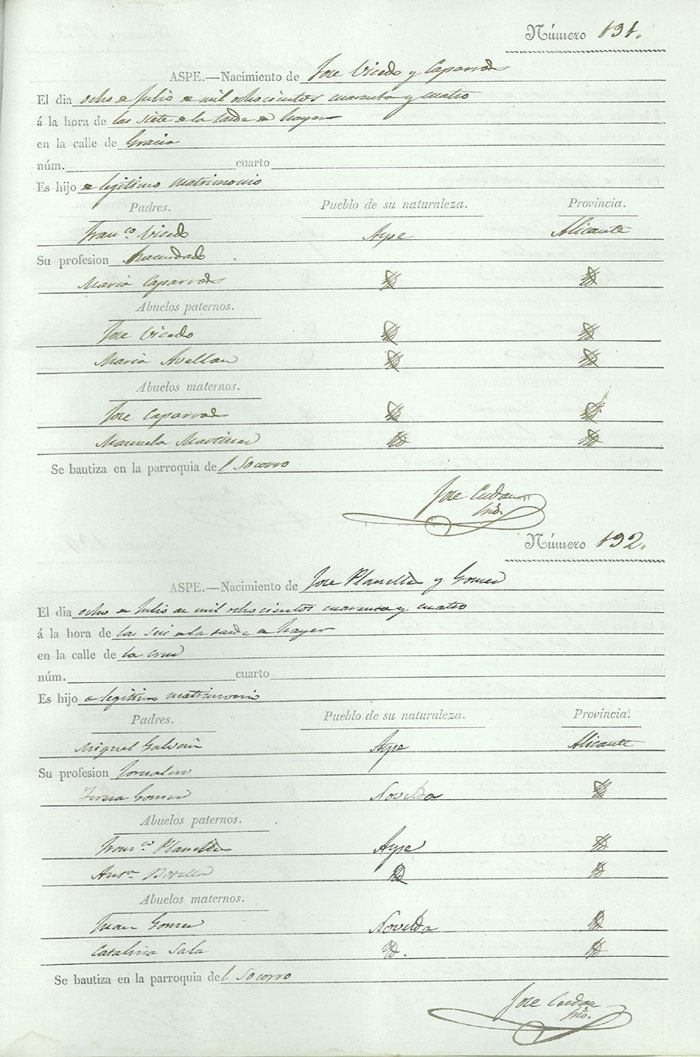 Número 131.
ASPE.—Nacimiento de Jose Vicedo y Caparros
El dia ocho de Julio de mil ochocientos cuarenta y cuatro
á la hora de las siete de la tarde de hayer
en la calle de Gracia
núm. cuarto
Es hijo de legitimo matrimonio
Padres. Pueblo de su naturaleza. Provincia.
Franco. Vicedo Aspe Alicante
Su profesion Hacendado
Maria Caparros Yd Yd
Abuelos paternos.
Jose Vicedo Yd Yd
Maria Avellan Yd Yd
Abuelos maternos.
Jose Caparros Yd Yd
Manuela Martinez Yd Yd
Se bautiza en la parroquia del Socorro
Jose
Número 132.
ASPE.—Nacimiento de Jose Planelles y Gomez
El dia ocho de Julio de mil ochocientos cuarenta y cuatro
á la hora de las seis de la tarde de hayer
en la calle de la cruz
núm. cuarto
Es hijo de legitimo matrimonio
Padres. Pueblo de su naturaleza. Provincia.
Miguel Aspe Alicante
Su profesion Jornalero
Teresa Gomez Novelda Yd
Abuelos paternos.
Franco. Planelles Aspe Yd
Anta. Botella Yd Yd
Abuelos maternos.
Juan Gomez Novelda Yd
Catalina Sala Yd. Yd
Se bautiza en la parroquia del Socorro
Jose